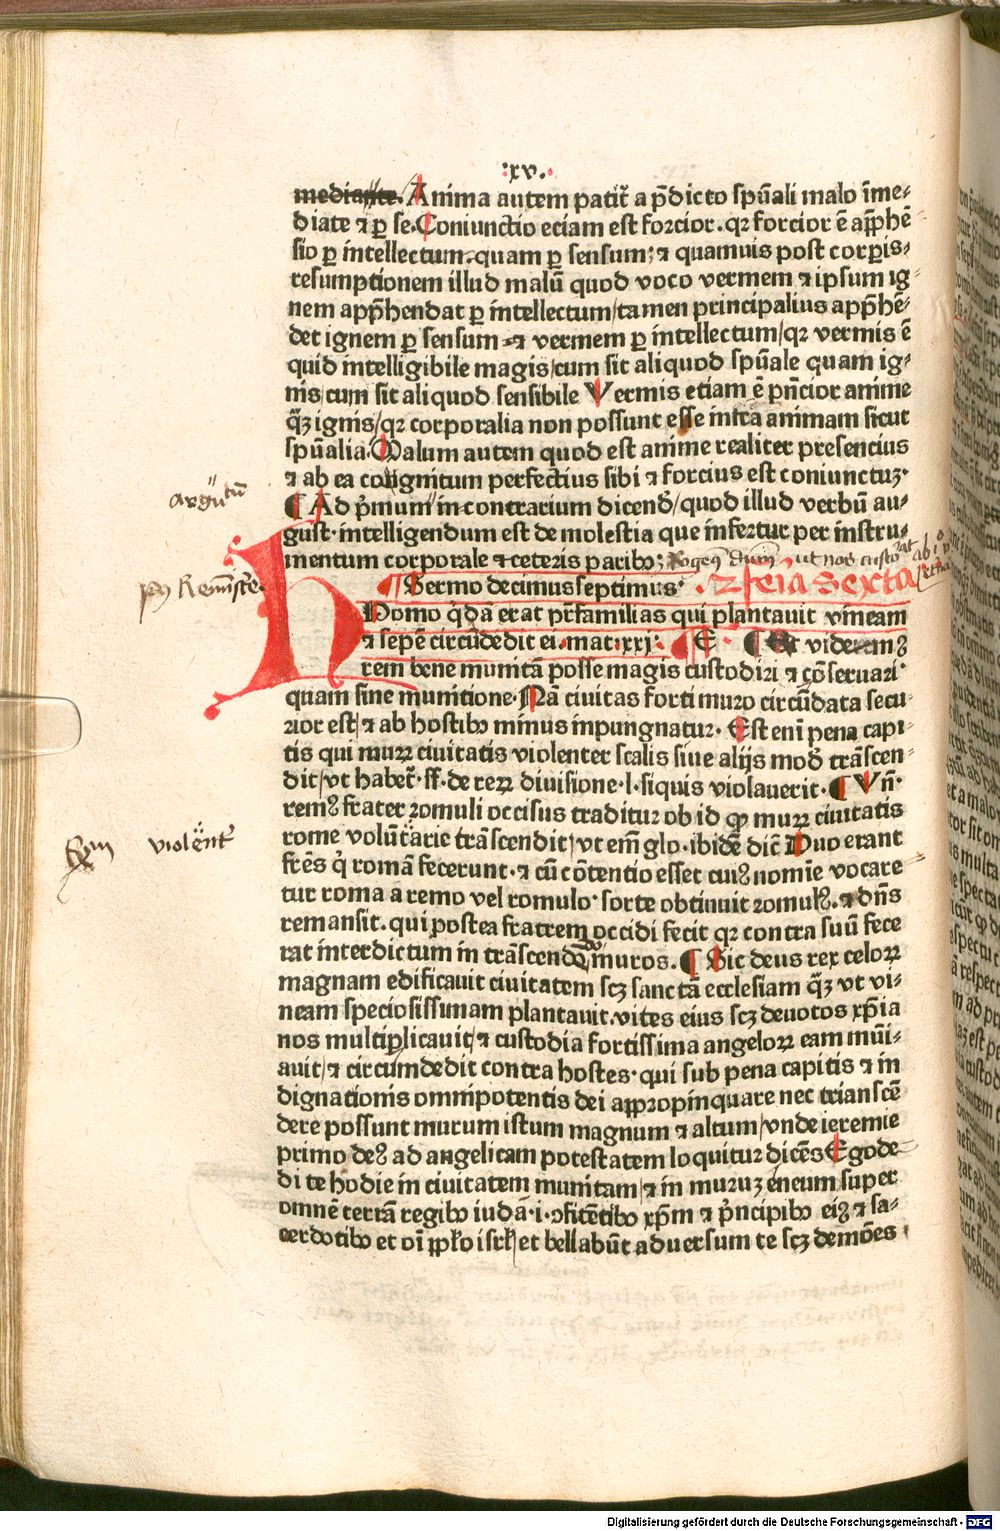 :xv.
mediante. Anima autem patit̃ a p̃dicto spũali malo ĩme-
diate ⁊ ꝑ se. Coniunctio eciam est forcior. qꝛ forcior ẽ app̃hẽ-
sio ꝑ intellectum. quam ꝑ sensum; ⁊ quamuis post corꝑis-
resumptionem illud malũ quod voco vermem ⁊ ipsum ig-
nem app̃hendat ꝑ intellectum/tamen principalius app̃hẽ-
det ignem ꝑ sensum ⁊ vermem ꝑ intellectum/qꝛ vermis ẽ
quid intelligibile magis/cum sit aliquod spũale quam ig-
nis/cum sit aliquod sensibile Vermis etiam ẽ pñcior anime
qȝ ignis/qꝛ corporalia non possunt esse intra animam sicut
spũalia. Malum autem quod est anime realiter presencius
⁊ ab ea cognitum perfectius sibi ⁊ forcius est coniunctuȝ.
argũtũ
¶ Ad p̃mum in contrarium dicend̃/quod illud verbũ au-
gust. intelligendum est de molestia que infertur per instru-
mentum corporale ⁊ ceteris paribꝯ
¶ Sermo decimus septimus. 2 feria sexta
Homo q̃dã erat pr̃familias qui plantauit vineam
⁊ sepẽ circũdedit ei. mat. xxi. ¶ videmꝰ
rem bene munitã posse magis custodiri ⁊ cõseruari
quam sine munitione. Nã ciuitas forti muro circũdata secu-
rior est/⁊ ab hostibꝯ minus inpungnatur. Est enĩ pena capi-
tis qui murꝝ ciuitatis violenter scalis siue alijs mod̃ trãscen-
dit/vt habet̃. ff. de reꝝ diuisione. l. siquis violauerit. ¶ Vñ.
remꝰ frater romuli occisus traditur ob id ꝙ murꝝ ciuitatis
rome volũtarie trãscendit/vt em̃ glo. ibidẽ dic̃ Duo erant
violẽnt̃
fr̃es q̇ romã fecerunt. ⁊ cũ cõtentio esset cuiꝰ nomĩe vocare
tur roma a remo vel romulo. sorte obtinuit romulꝰ. ⁊ dñs
remansit. qui postea fratrem occidi fecit qꝛ contra suũ fece
rat interdictum in trãscendo muros. ¶ Sic deus rex celoꝝ
magnam edificauit ciuitatem scȝ sanctã ecclesiam qȝ vt vi-
neam speciosissimam plantauit. vites eius scȝ deuotos xp̃ia
nos multiplicauit/⁊ custodia fortissima angeloꝝ eam mũi-
auit/⁊ circumdedit contra hostes. qui sub pena capitis ⁊ in
dignationis omnipotentis dei appropinquare nec trianscẽ
dere possunt murum istum magnum ⁊ altum/vnde ieremie
primo deꝰ ad angelicam potestatem loquitur dicẽs Ego de-
di te hodie in ciuitatem munitam/⁊ in muruȝ eneum super
omnẽ terrã regibꝯ iudã. i. ꝯfitẽtibꝯ xp̃m ⁊ p̃ncipibꝯ eiꝰ ⁊ sa-
cerdotibꝯ et oĩ pplo isrł/et bellabũt aduersum te scȝ demões
Digitalisierung gefördert durch die Deutsche Forschungsgemeinschaft - DFG